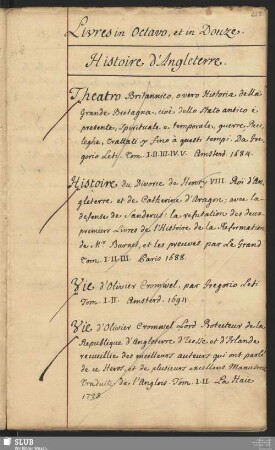 Livres in Octavo, et in Douze.
Histoire d'Angleterre.
Theatro Britannico, overo Historia della
Grande Bretagna, cioè, dello stato antico è
presente, Spirituale e temporale, guerre, Pri-
vileghi, Trattati e fino à questi tempi. Da Gre-
gorio Leti. Tom. I-II-III-IV-V. Amsterd. 1684.
Histoire du Divorce de Henry VIII Roi d'An-
gleterre et de Catherine d'Aragon; avec la
defense de Sanderus: la refutation des deux
premiers Livres de l'Histoire de la Reformation
de Mr. Burnet, et les preuves par Le Grand
Tom. I-II-III. Paris 1688.
Vie d'Olivier Cromwel, par Gregorio Leti
Tom. I-II. Amsterd. 1694
Vie d'Olivier Cromwel Lord Protecteur de la
Republique d'Angleterre d'Ecosse et d'Irlande
recueillie des meilleurs auteurs qui ont parlé
de ce Heros, et de plusieurs excellens Manuscrits
Traduite de l'Anglois. Tom. I-II. La Haie
1738.
SLUB
Wir führen Wissen.